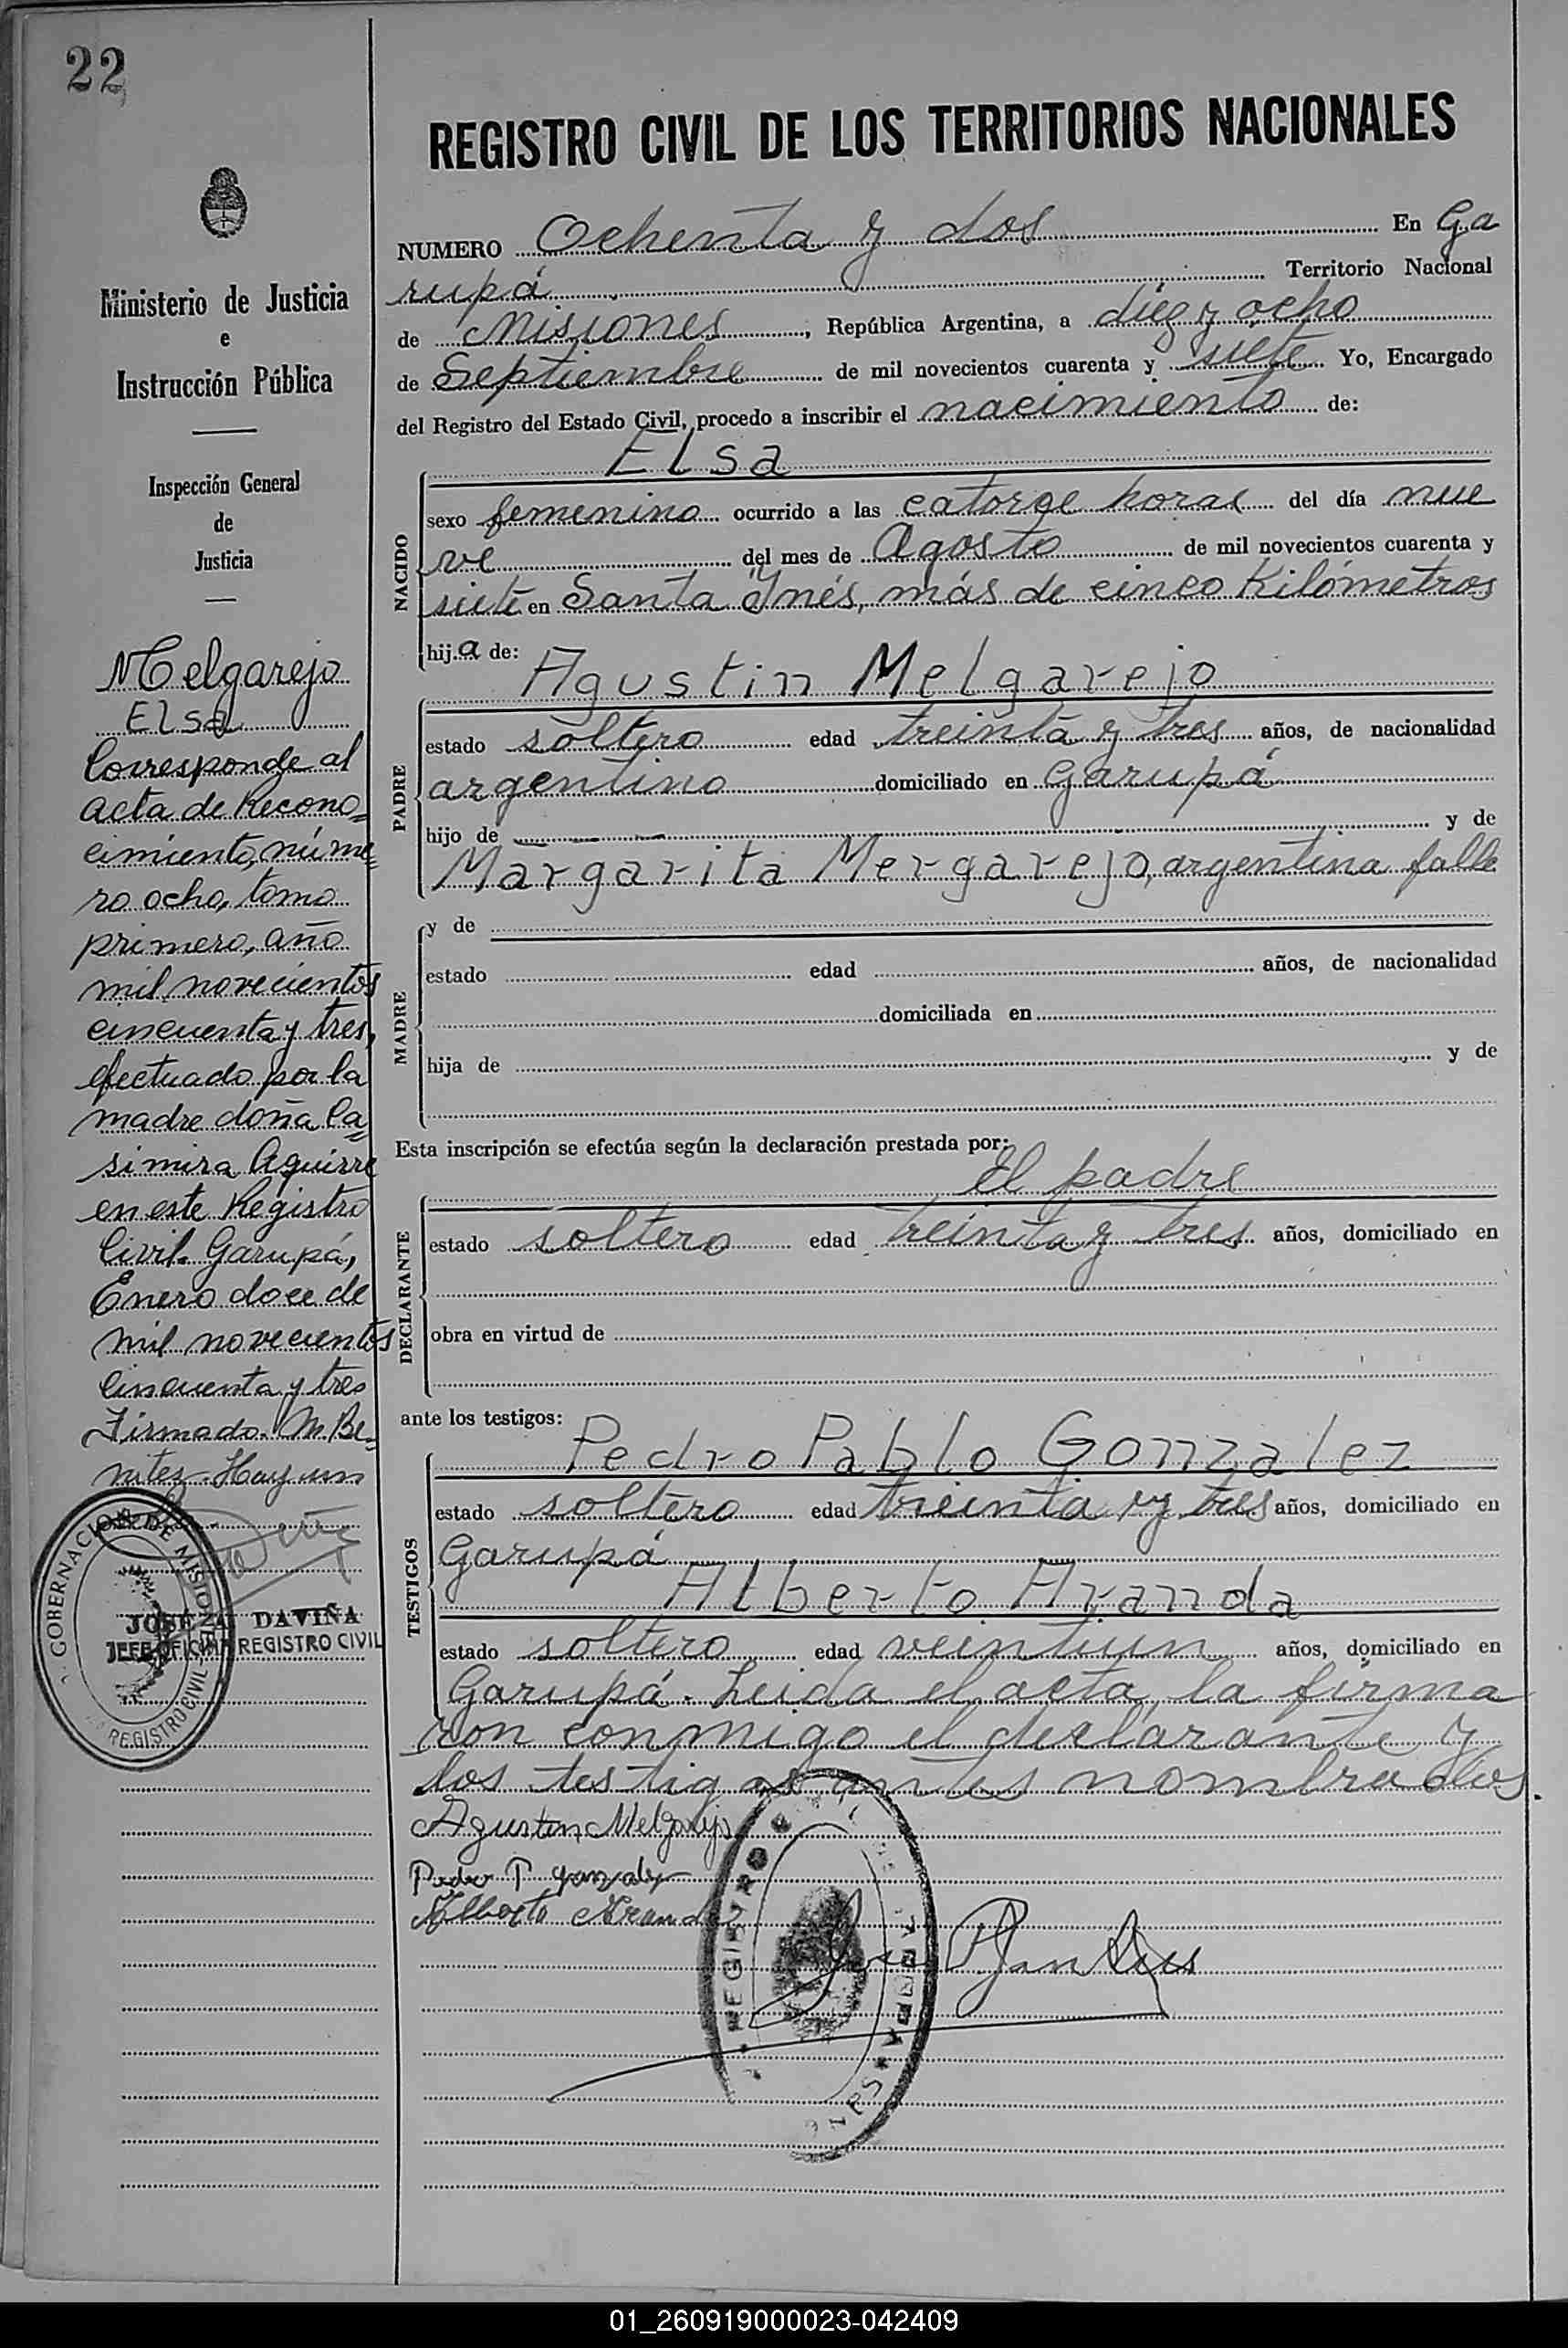 22
REGISTRO CIVIL DE LOS TERRITORIOS NACIONALES
NUMERO Ochenta y dos En Ga
rupá Territorio Nacional
de Misiones, República Argentina, a diez y ocho
de Septiembre de mil novecientos cuarenta y siete Yo, Encargado
del Registro del Estado Civil, procedo a inscribir el nacimiento de:
Elsa
NACIDO
sexo femenino ocurrido a las catorce horas del día nue
ve del mes de Agosto de mil novecientos cuarenta y
siete en Santa Ynés, más de cinco Kilómetros
hij a de:
Agustin Melgarejo
PADRE
estado soltero edad treinta y tres años, de nacionalidad
argentino domiciliado en Garupá
hijo de y de
Margarita Mergarejo, argentina falle
MADRE
y de
estado edad años, de nacionalidad
domiciliada en
hija de y de
Esta inscripción se efectúa según la declaración prestada por:
el padre
DECLARANTE
estado soltero edad treinta y tres años, domiciliado en
obra en virtud de
ante los testigos:
Pedro Pablo Gonzalez
TESTIGOS
estado soltero edad treinta y tres años, domiciliado en
Garupá
Alberto Aranda
estado soltero edad veintiun años, domiciliado en
Garupá. Leida el acta, la firma
ron conmigo el declarante y
los testigos antes nombrados.
Agustin Melgarejo
Pedro P Gonzalez
Alberto Aranda
REGISTRO
Ministerio de Justicia
e
Instrucción Pública
Inspección General
de
Justicia
Melgarejo
Elsa
Corresponde al
acta de Recono=
cimiento, núme=
ro ocho, tomo
primero, año
mil novecientos
cincuenta y tres,
efectuado por la
madre doña Ca=
simira Aguirre
en este Registro
Civil. Garupá,
Enero doce de
mil novecientos
cincuenta y tres
Firmado. M. Be=
nitez. Hay un
GOBERNACION DE MISIONES
REGISTRO CIVIL
JOSÉ A. DAVIÑA
JEFE OFICINA REGISTRO CIVIL
01_260919000023-042409